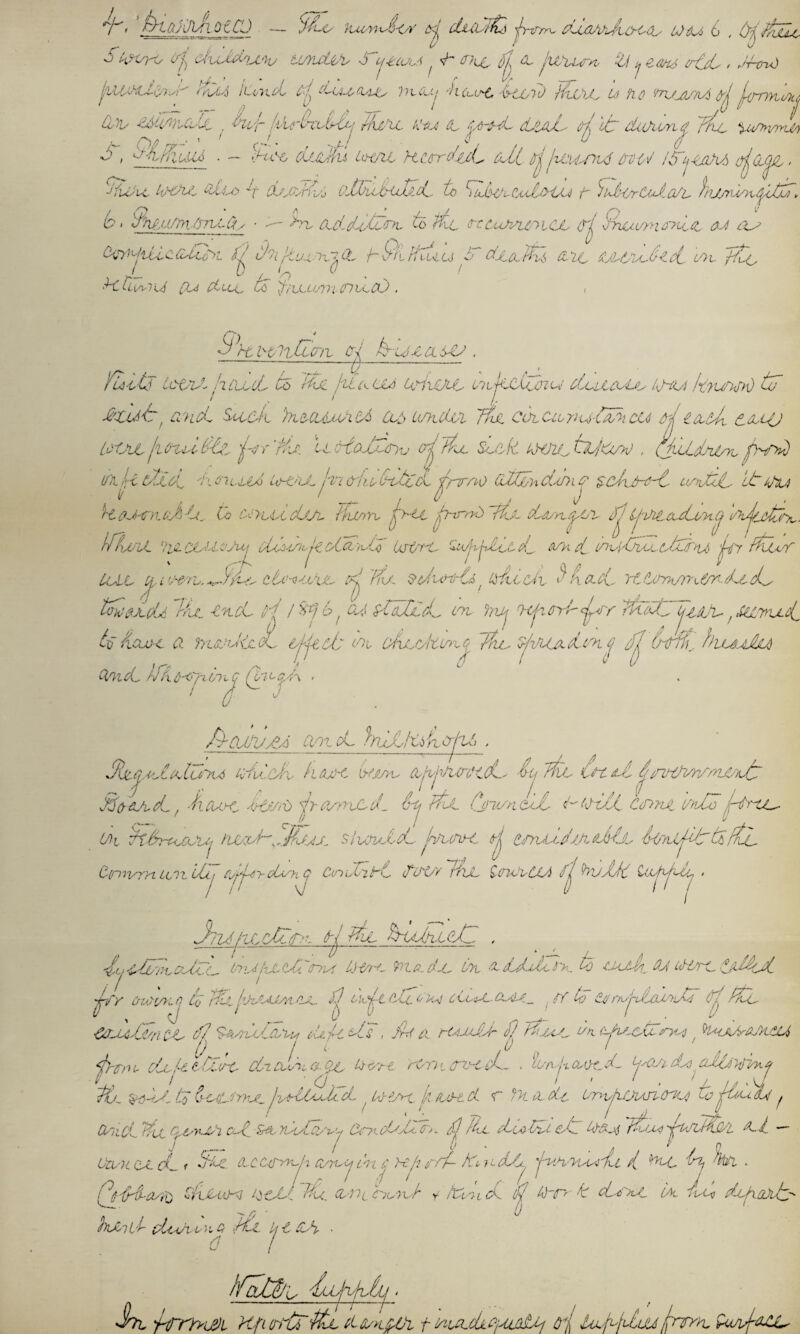 4. Diarrhoea — The number of deaths from diarrhoea was 6, Of these
5 were of children under 5 years, & one of a person 21 years old. How
prevalent this kind of disease may have been there is no means of forming
an estimate, but probably there was a good deal of it during the summer
5, Phthisis. — Five deaths were recorded all of persons over 15 years of age.
There were also 4 deaths attributed to Tuberculosis & Tubercular Meningitis.
6. Pneumonia. — In addition to the occurrence of Pneumonia as a
complication of Influenza & Phthisis 5 deaths are ascribed in the
returns as due to Pneumonia.
Prevention of Disease.
Visits were paid to the places where infectious disease was known to
exist, and such measures as under the circumstances of each case
were possible for the isolation of the sick were taken. Children from
infected houses were prohibited from attending school until it was
reasonable to consider them free from the danger of spreading infection.
Where necessary disinfectants were supplied and instructions for their
use given. The closure of the schools, which I had recommended
towards the end of 1896, as stated in my report for that year, seemed
to have a marked effect in checking the spreading of both Measles
and Whooping Cough.
Dairies and Milkshops.
Regulations which have been approved by the Local Government
Board, have been framed by the Council & will come into force
in February next. These should prove of considerable benefit to the
Community affording control over the sources of Milk Supply.
Inspection of the District.
Systematic inspections were made in addition to such as were called
for owing to the presence of infectious disease, or to complaints of the
existence of Sanitary defects. As a result of these inspections, nuisances
from defective drainage were removed. Unpaved yards allowing
the soil to become polluted, were paved & made improvements to fluids,
and the general sanitary condition of the district was thus further ad—
vanced. The accompanying report kindly furnished me by Mr.
Cobham shews well the amount & kind of work done in his depart-
ment during the year.
Water Supply.
In former reports the danger & inadequacy of Supplies from Surface